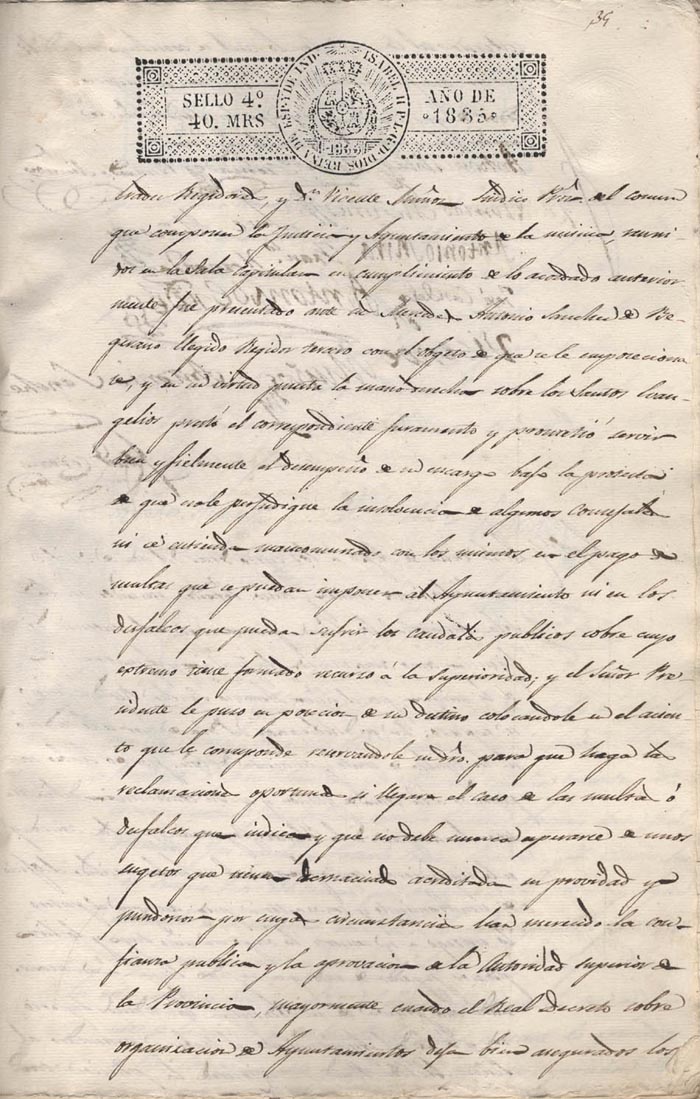 39
SELLO 4º
40. MRS
ISABEL II P. L. G. DE DIOS REINA DE ESP. Y DE IND.
1835
AÑO DE
1835
Regidores, y Dn. Vicente Síndico Pror. del comun
que componen la Justicia y Ayuntamiento de la misma, reuni-
dos en la Sala Capitular en cumplimiento de lo acordado anterior
mente fue presentado ante sus Mercedes Antonio Sanchez de Re-
elegido Regidor tercero con el objeto de que se le emposeciona
se, y en su virtud puesta la mano derecha sobre los Santos Evan-
gelios prestó el correspondiente juramento y prometió servir
bien y fielmente el desempeño de su encargo bajo la protesta
de que no le perjudique la insolvencia de algunos Concejales
ni se entienda mancomunado con los mismos en el pago de
multas que se puedan imponer al Ayuntamiento ni en los
desfalcos que puedan sufrir los caudales publicos sobre cuyo
extremo tiene formado recurso á la Superioridad; y el Señor Pre-
sidente le puso en posecion de su destino colocandole en el acien-
to que le corresponde reservandole su dro. para que haga las
reclamaciones oportunas si llegara el caso de las multas ó
desfalcos que indica y que no debe nunca esperarse de unos
sugetos que tienen demaciado acreditada su providad y
pundonor por cuyas circunstancias han merecido la con-
fianza publica y la aprovacion de la Autoridad superior de
la Provincia, mayormente cuando el Real Decreto sobre
organizacion de Ayuntamientos deja bien asegurados los